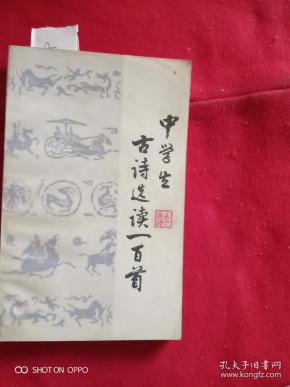 中学生
古诗选读一百首
SHOT ON OPPO
孔夫子旧书网